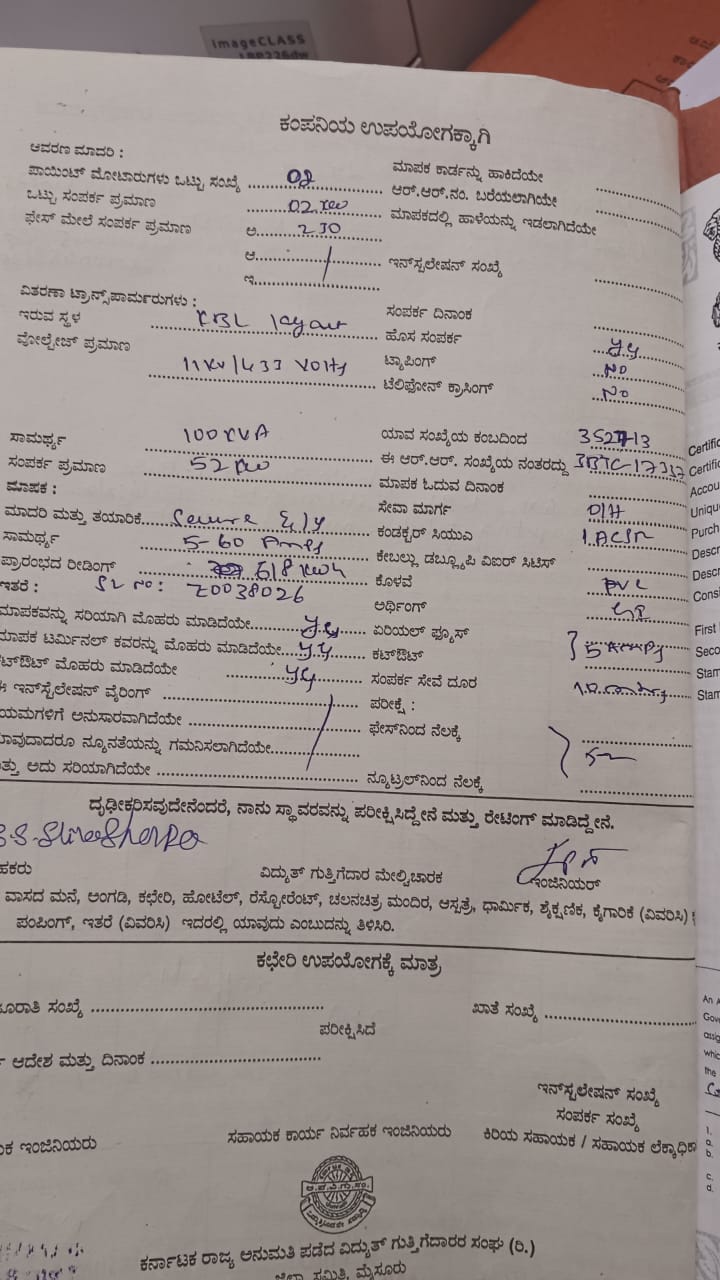 imageCLASS
LBP226dw
ಕಂಪನಿಯ ಉಪಯೋಗಕ್ಕಾಗಿ
ಆವರಣ ಮಾದರಿ :
ಪಾಯಿಂಟ್ ಮೋಟಾರುಗಳು ಒಟ್ಟು ಸಂಖ್ಯೆ 02 ಮಾಪಕ ಕಾರ್ಡನ್ನು ಹಾಕಿದೆಯೇ
ಒಟ್ಟು ಸಂಪರ್ಕ ಪ್ರಮಾಣ 02 kw ಆರ್.ಆರ್.ನಂ. ಬರೆಯಲಾಗಿಯೇ
ಫೇಸ್ ಮೇಲೆ ಸಂಪರ್ಕ ಪ್ರಮಾಣ ಅ 230 ಮಾಪಕದಲ್ಲಿ ಹಾಳೆಯನ್ನು ಇಡಲಾಗಿದೆಯೇ
ಆ
ಇ ಇನ್‌ಸ್ಟಲೇಷನ್ ಸಂಖ್ಯೆ
ವಿತರಣಾ ಟ್ರಾನ್ಸ್‌ಪಾರ್ಮರುಗಳು : ಸಂಪರ್ಕ ದಿನಾಂಕ
ಇರುವ ಸ್ಥಳ RBL layout ಹೊಸ ಸಂಪರ್ಕ yes
ವೋಲ್ಟೇಜ್ ಪ್ರಮಾಣ 11 KV/433 Volts ಟ್ಯಾಪಿಂಗ್ NO
ಟೆಲಿಫೋನ್ ಕ್ರಾಸಿಂಗ್ NO
ಸಾಮರ್ಥ್ಯ 100 KVA ಯಾವ ಸಂಖ್ಯೆಯ ಕಂಬದಿಂದ
ಸಂಪರ್ಕ ಪ್ರಮಾಣ 52 kw ಈ ಆರ್.ಆರ್. ಸಂಖ್ಯೆಯ ನಂತರದ್ದು
ಮಾಪಕ : ಮಾಪಕ ಓದುವ ದಿನಾಂಕ
ಮಾದರಿ ಮತ್ತು ತಯಾರಿಕೆ Secure ಸೇವಾ ಮಾರ್ಗ O/H
ಸಾಮರ್ಥ್ಯ 5-60 Amps ಕಂಡಕ್ಟರ್ ಸಿಯುಎ
ಪ್ರಾರಂಭದ ರೀಡಿಂಗ್ 618 kwh ಕೇಬಲ್ಲು ಡಬ್ಲ್ಯೂಪಿ ವಿಐರ್ ಸಿಟಿಸ್
ಇತರೆ : Sl No: Z0038026 ಕೊಳವೆ PVC
ಅರ್ಥಿಂಗ್ GI
ಮಾಪಕವನ್ನು ಸರಿಯಾಗಿ ಮೊಹರು ಮಾಡಿದೆಯೇ yes ಏರಿಯಲ್ ಫ್ಯೂಸ್
ಮಾಪಕ ಟರ್ಮಿನಲ್ ಕವರನ್ನು ಮೊಹರು ಮಾಡಿದೆಯೇ yes ಕಟ್‌ಔಟ್ 5 Amps
ಕಟ್‌ಔಟ್ ಮೊಹರು ಮಾಡಿದೆಯೇ yes ಸಂಪರ್ಕ ಸೇವೆ ದೂರ
ಈ ಇನ್‌ಸ್ಟೆಲೇಷನ್ ವೈರಿಂಗ್ ಪರೀಕ್ಷೆ :
ಯಮಗಳಿಗೆ ಅನುಸಾರವಾಗಿದೆಯೇ ಫೇಸ್‌ನಿಂದ ನೆಲಕ್ಕೆ
ಯಾವುದಾದರೂ ನ್ಯೂನತೆಯನ್ನು ಗಮನಿಸಲಾಗಿದೆಯೇ
ತ್ತು ಅದು ಸರಿಯಾಗಿದೆಯೇ ನ್ಯೂಟ್ರಲ್‌ನಿಂದ ನೆಲಕ್ಕೆ
ದೃಢೀಕರಿಸುವುದೇನೆಂದರೆ, ನಾನು ಸ್ಥಾವರವನ್ನು ಪರೀಕ್ಷಿಸಿದ್ದೇನೆ ಮತ್ತು ರೇಟಿಂಗ್ ಮಾಡಿದ್ದೇನೆ.
ಹಕರು ವಿದ್ಯುತ್ ಗುತ್ತಿಗೆದಾರ ಮೇಲ್ವಿಚಾರಕ ಇಂಜಿನಿಯರ್
ವಾಸದ ಮನೆ, ಅಂಗಡಿ, ಕಛೇರಿ, ಹೋಟೆಲ್, ರೆಸ್ಟೋರೆಂಟ್, ಚಲನಚಿತ್ರ ಮಂದಿರ, ಆಸ್ಪತ್ರೆ, ಧಾರ್ಮಿಕ, ಶೈಕ್ಷಣಿಕ, ಕೈಗಾರಿಕೆ (ವಿವರಿಸಿ)
ಪಂಪಿಂಗ್, ಇತರೆ (ವಿವರಿಸಿ) ಇದರಲ್ಲಿ ಯಾವುದು ಎಂಬುದನ್ನು ತಿಳಿಸಿರಿ.
ಕಛೇರಿ ಉಪಯೋಗಕ್ಕೆ ಮಾತ್ರ
ಜೂರಾತಿ ಸಂಖ್ಯೆ ಖಾತೆ ಸಂಖ್ಯೆ
ಪರೀಕ್ಷಿಸಿದೆ
ಆದೇಶ ಮತ್ತು ದಿನಾಂಕ
ಇನ್‌ಸ್ಟಲೇಷನ್ ಸಂಖ್ಯೆ
ಸಂಪರ್ಕ ಸಂಖ್ಯೆ
ಕ ಇಂಜಿನಿಯರು ಸಹಾಯಕ ಕಾರ್ಯ ನಿರ್ವಹಕ ಇಂಜಿನಿಯರು ಕಿರಿಯ ಸಹಾಯಕ / ಸಹಾಯಕ ಲೆಕ್ಕಾಧಿಕಾ
ಕರ್ನಾಟಕ ರಾಜ್ಯ ಅನುಮತಿ ಪಡೆದ ವಿದ್ಯುತ್ ಗುತ್ತಿಗೆದಾರರ ಸಂಘ (ರಿ.)
ಜಿಲ್ಲಾ ಸಮಿತಿ, ಮೈಸೂರು
Certific
Certific
Accou
Uniqu
Purch
Descr
Descr
Consi
First
Seco
Stam
Stam
An A
Gove
assig
whic
the
1.
a.
b.
c.
d.